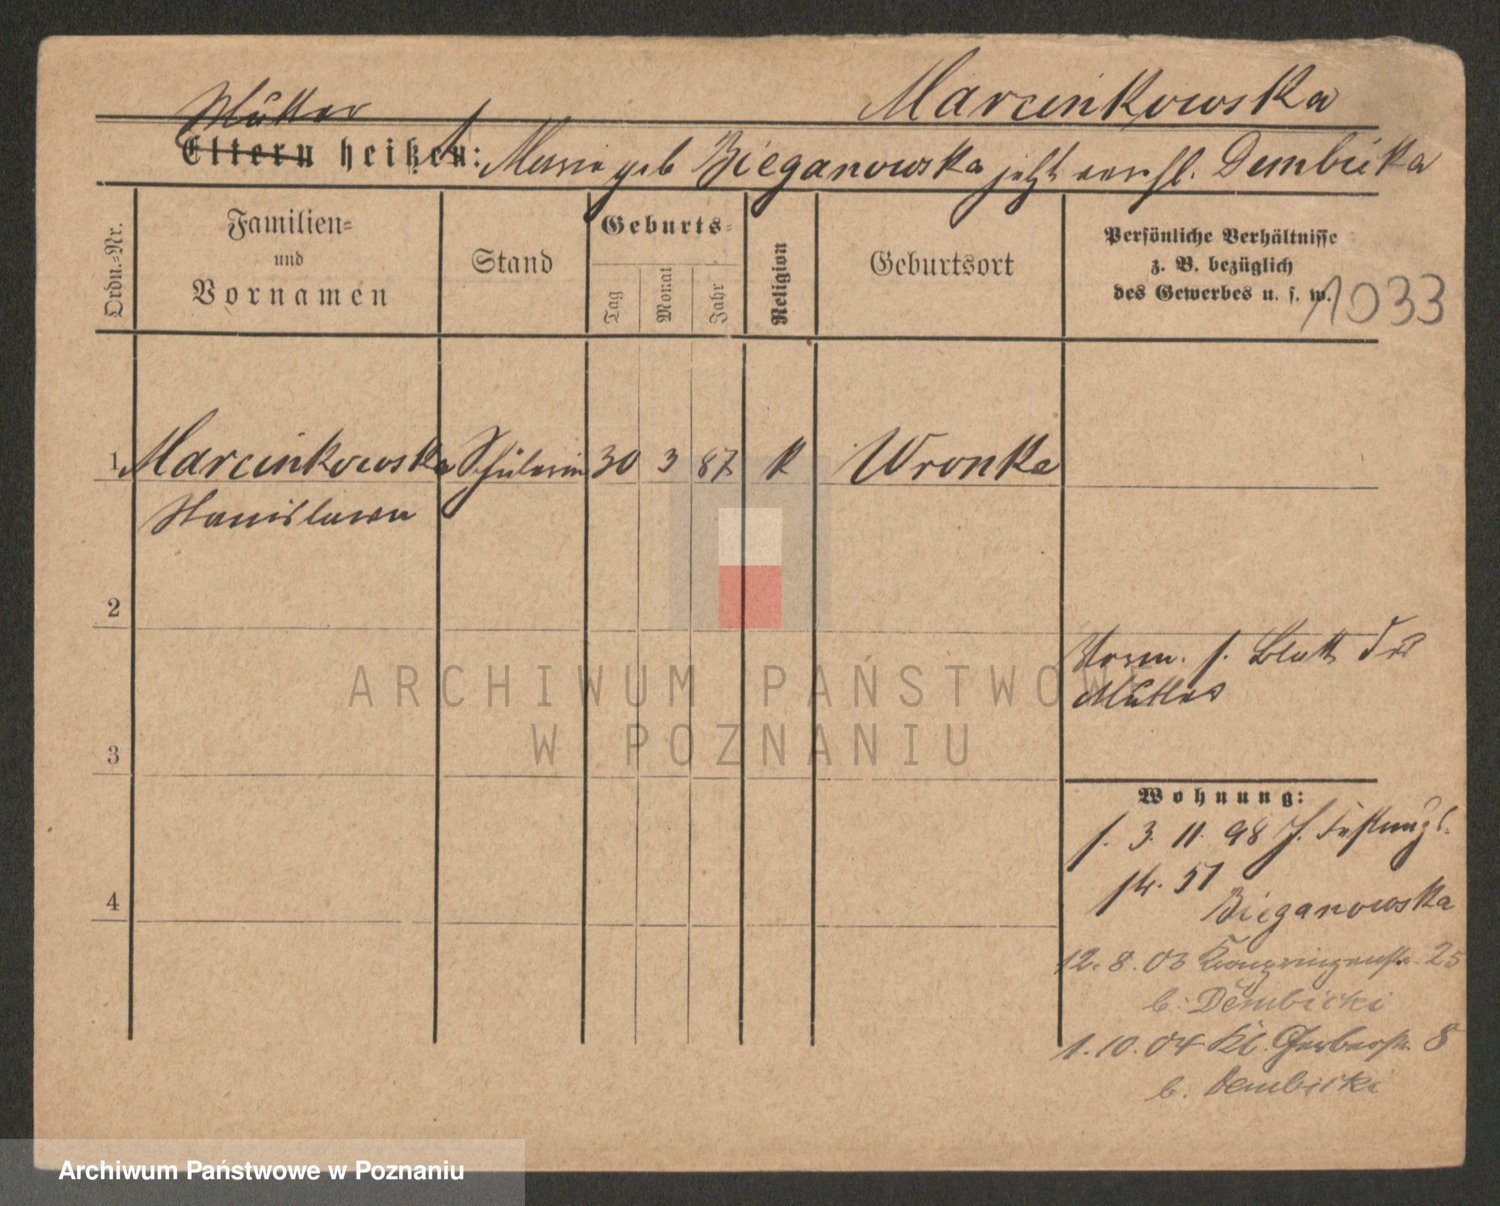 Marcinkowska
Mutter
Eltern heißen: Marie geb Bieganowska jetzt verehl. Dembicka
Ordn.-Nr.
Familien-
und
Vornamen
Stand
Geburts-
Tag
Monat
Jahr
Religion
Geburtsort
Persönliche Verhältnisse
z. B. bezüglich
des Gewerbes u. s. w.
1033
1 Marcinkowska Schülerin 30 3 87 k Wronke
Stanislawa
2
Vorm. s. Blatt der
Mutter
3
Wohnung:
f. 3. 11. 98 J. Festungs-
str. 51
Bieganowska
4
12. 8. 03 25
b. Dembicki
1. 10. 04 Kl. Gerberstr. 8
b. Dembicki
ARCHIWUM PAŃSTWOWE
W POZNANIU
Archiwum Państwowe w Poznaniu